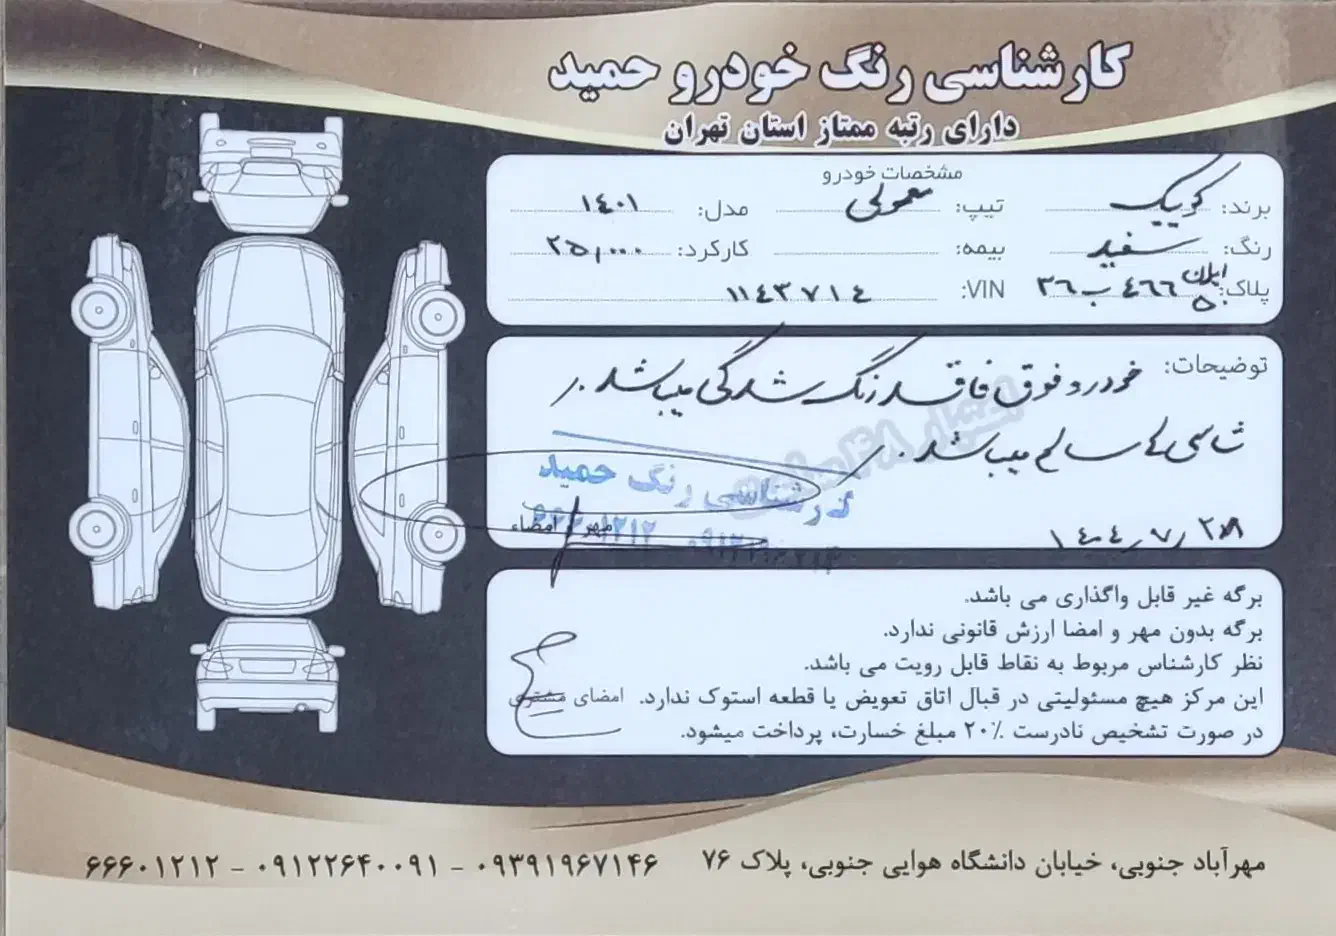 کارشناسی رنگ خودرو حمید
دارای رتبه ممتاز استان تهران
مشخصات خودرو
برند: کوییک تیپ: معمولی مدل: ۱۴۰۱
رنگ: سفید بیمه: کارکرد: ۲۵,۰۰۰
پلاک: ایران ۵۰ ۴۶۶ ب ۳۶ VIN: ۱۱۴۳۷۱۴
توضیحات: خودرو فوق فاقد رنگ شدگی میباشد.
شاسی ها سالم میباشد.
کارشناسی رنگ حمید
مهر و امضاء
۱۴۰۴/۷/۲۸
برگه غیر قابل واگذاری می باشد.
برگه بدون مهر و امضا ارزش قانونی ندارد.
نظر کارشناس مربوط به نقاط قابل رویت می باشد.
این مرکز هیچ مسئولیتی در قبال اتاق تعویض یا قطعه استوک ندارد. امضای مشتری
در صورت تشخیص نادرست ۲۰٪ مبلغ خسارت، پرداخت میشود.
مهرآباد جنوبی، خیابان دانشگاه هوایی جنوبی، پلاک ۷۶ ۰۹۳۹۱۹۶۷۱۴۶ - ۰۹۱۲۲۶۴۰۰۹۱ - ۶۶۶۰۱۲۱۲